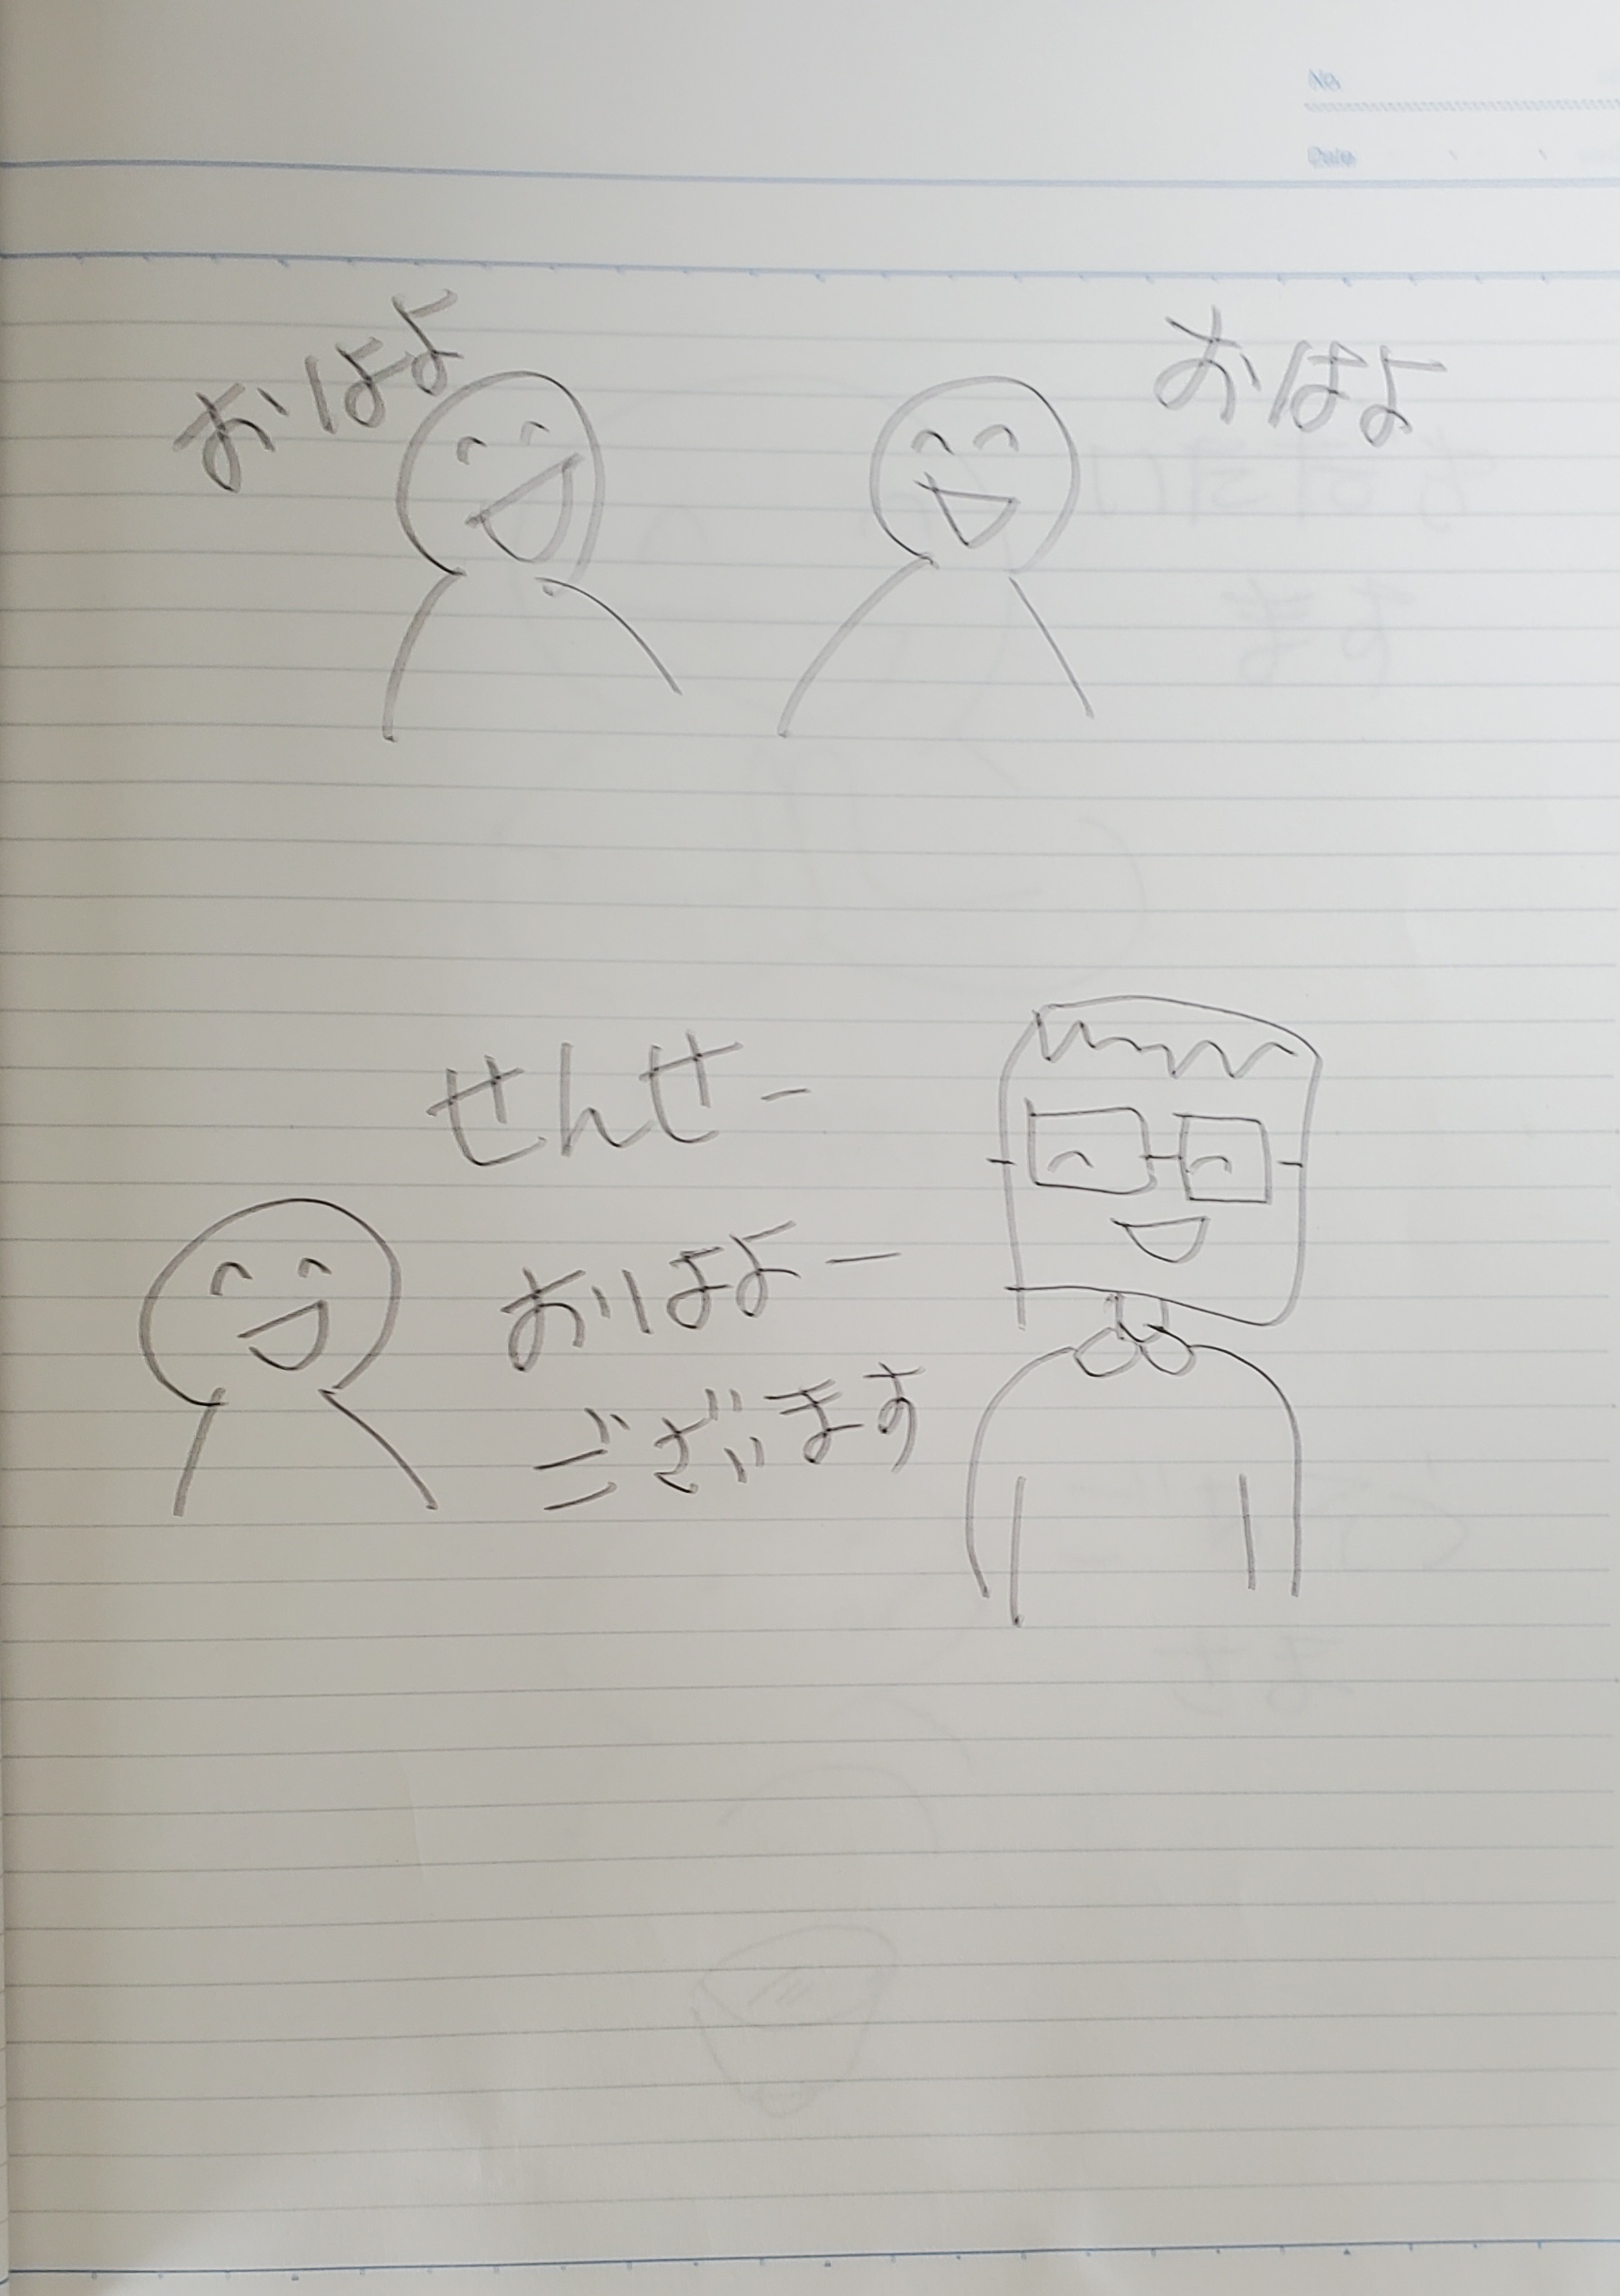 No
Date
おはよ
おはよ
せんせー
おはよー
ございます